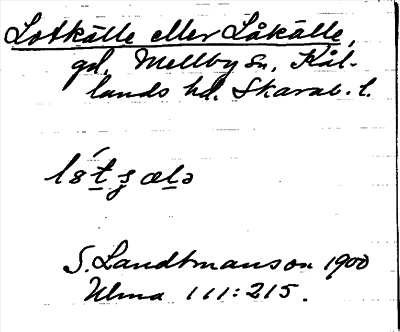 Lotkälle eller Låkälle,
gd, Mellby sn, Kål-
lands hd. Skarab. l.
S. Landtmanson 1900
Ulma 111:215.